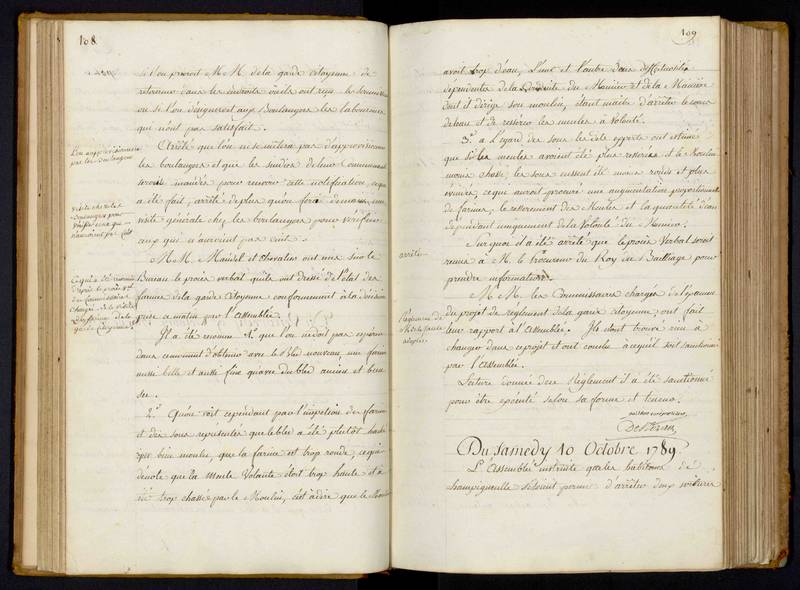 108
si l'on prieroit M M de la garde citoyenne de
retourner dans les endroits où ils ont
ou si l'on désigneroit aux Boulangers les laboureurs
qui n'ont pas satisfait.
Arrêté que l'on ne se
les boulangers et que les sindics de leur Communauté
seroient mandés pour recevoir cette notification, ce qui
a été fait, arrêté de plus qu'on fera demain, une
visite générale chez les boulangers pour vérifier
ceux qui n'auroient pas cuit.
M M. Maudell et Chevalier ont mis sur le
Bureau le procès verbal qu'ils ont dressé de l'état des
farines de la garde Citoyenne conformément à la décision
prise ce matin par l'assemblée.
Il a été reconnu 1.° que l'on ne doit pas espérer
dans ce moment d'obtenir avec le Bled nouveau, une farine
aussi belle et aussi fine qu'avec du bled ancien et bien
sec.
2.° Qu'on voit cependant par l'inspection des farines
et des sons représentés que le bled a été plutôt haché
que bien moulu, que la farine est trop ronde, ce qui
dénote que la meule Volante étoit trop haute et a
été trop chassé par le Moulin, c'est à dire que le Moulin
visite chez les
boulangers pour
109
avoit trop d'eau, L'une et l'autre de ces
dépendantes de la Conduite du Meunier et de la Manière
dont il dirige son moulin, étant maître d'arrêter le cours
de l'eau et de resserrer les meules à Volonté.
3.° a l'égard des sons les
que si les meules avoient été plus resserrées et le Moulin
moins chassé, les sons eussent été moins ronds et plus
évuidés, ce qui auroit procuré une augmentation proportionnelle
de farines, le resserrement des Meules et la quantité d'eau
dépendant uniquement de la Volonté du Meunier.
Sur quoi il a été arrêté que le procès Verbal seroit
remis à M. le Procureur du Roy du Bailliage pour
prendre information.
arrêté
M M. les Commissaires chargés de l'examen
du projet de Reglement de la garde citoyenne, ont fait
leur rapport à l'assemblée. Ils n'ont trouvé rien à
changer dans ce projet et ont conclu à ce qu'il soit sanctionné
par l'assemblée.
Réglement de
la garde
adopté.
Lecture donnée de ce Réglement il a été sanctionné
pour être exécuté selon sa forme et teneur.
Du Samedy 10 Octobre 1789.
L'Assemblée instruite que les habitans de
Champigneulle s'étoient permis d'arrêter deux voitures